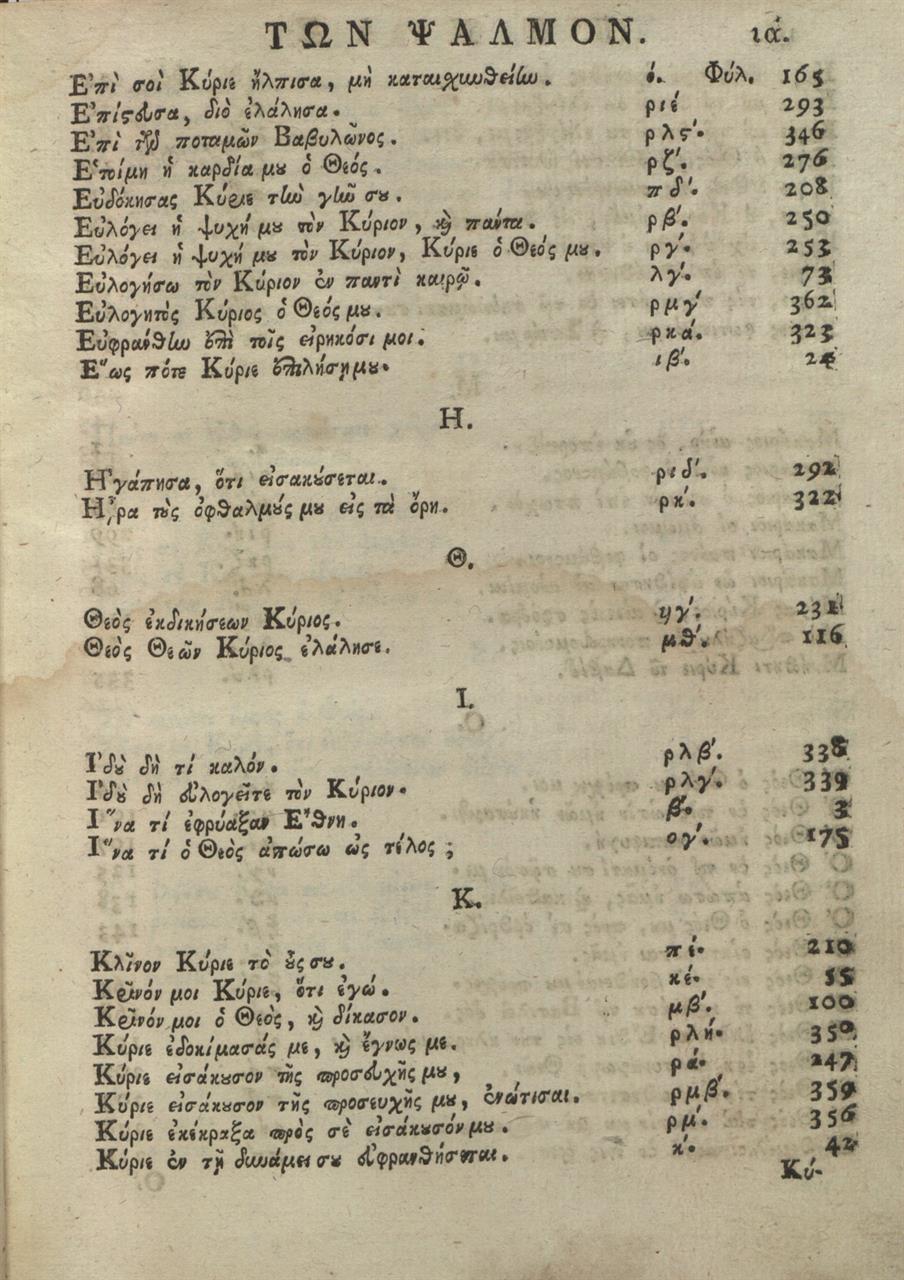 ΤΩΝ ΨΑΛΜΟΝ. ιά.
Ε'πὶ σοὶ Κύριε ἤλπισα, μὴ καταισχυνθείην. ό. Φύλ. 165
Ε'πίςευσα, διὸ ἐλάλησα. ριέ 293
Ε'πὶ τῶν ποταμῶν Βαβυλῶνος. ρλς'. 346
Ε'τοίμη ἡ καρδία μου ὁ Θεός. ρζ'. 276
Εὐδόκησας Κύριε τὴν γῆν σου. πδ'. 208
Εὐλόγει ἡ ψυχή μου τὸν Κύριον, καὶ πάντα. ρβ'. 250
Εὐλόγει ἡ ψυχή μου τὸν Κύριον, Κύριε ὁ Θεός μου. ργ'. 253
Εὐλογήσω τὸν Κύριον ἐν παντὶ καιρῷ. λγ'. 73
Εὐλογητὸς Κύριος ὁ Θεός μου. ρμγ' 362
Εὐφράνθην ἐπὶ τοῖς εἰρηκόσι μοι. ρκά. 323
Ε"ως πότε Κύριε ἐπιλήσῃ μου. ιβ'. 24
Η.
Η'γάπησα, ὅτι εἰσακούσεται. ριδ'. 292
Η῏ρα τοὺς ὀφθαλμούς μου εἰς τὰ ὄρη. ρκ'. 322
Θ.
Θεὸς ἐκδικήσεων Κύριος. ϟγ'. 231
Θεὸς Θεῶν Κύριος ἐλάλησε. μθ'. 116
Ι.
Ι'δοὺ δὴ τί καλόν. ρλβ'. 338
Ι'δοὺ δὴ εὐλογεῖτε τὸν Κύριον. ρλγ'. 339
Ι"να τί ἐφρύαξαν Ε"θνη. β'. 3
Ι"να τί ὁ Θεὸς ἀπώσω ὡς τέλος; ογ'. 175
Κ.
Κλῖνον Κύριε τὸ οὖς σου. πέ. 210
Κρῖνόν μοι Κύριε, ὅτι ἐγώ. κέ. 55
Κρῖνόν μοι ὁ Θεὸς, καὶ δίκασον. μβ'. 100
Κύριε ἐδοκίμασάς με, καὶ ἔγνως με. ρλή. 350
Κύριε εἰσάκουσον τῆς προσευχῆς μου, ρά. 247
Κύριε εἰσάκουσον τῆς προσευχῆς μου, ἐνώτισαι. ρμβ'. 359
Κύριε ἐκέκραξα πρὸς σὲ εἰσάκουσόν μου. ρμ'. 356
Κύριε ἐν τῇ δυνάμει σου εὐφρανθήσεται. κ'. 42
Κύ-